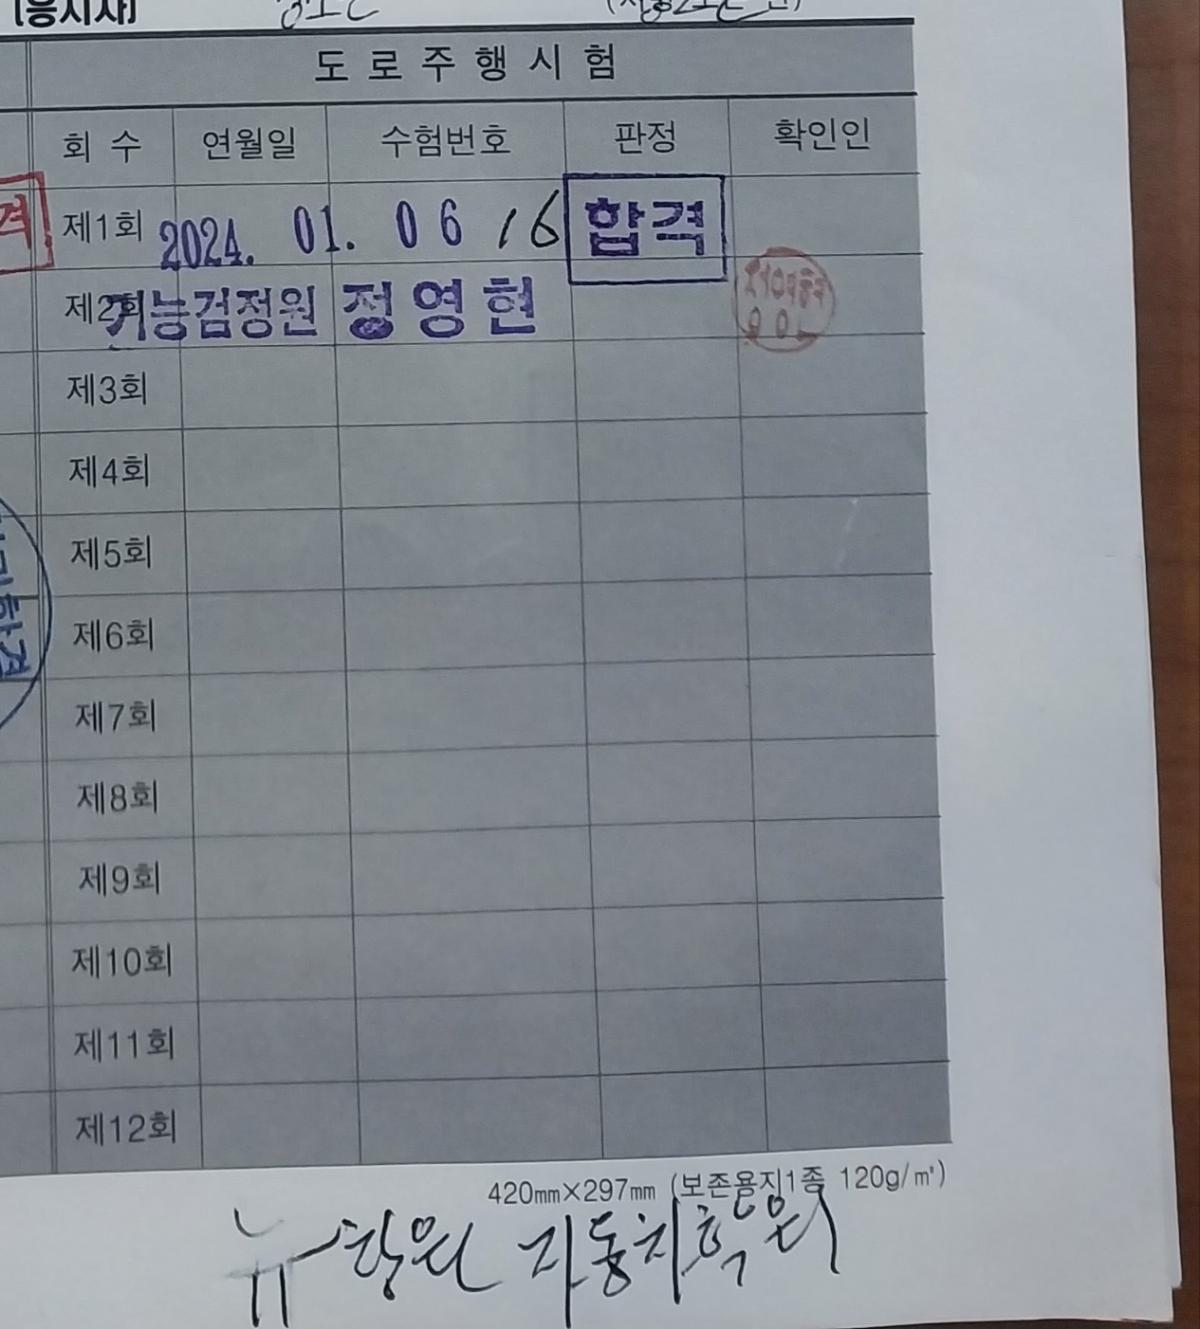 [응시자]
도로주행시험
회 수 연월일 수험번호 판정 확인인
격
제1회 2024. 01. 06 16 합격
제2회 기능검정원 정영현
제3회
제4회
제5회
제6회
제7회
제8회
제9회
제10회
제11회
제12회
420mm×297mm (보존용지1종 120g/㎡)
뉴창원 자동차학원